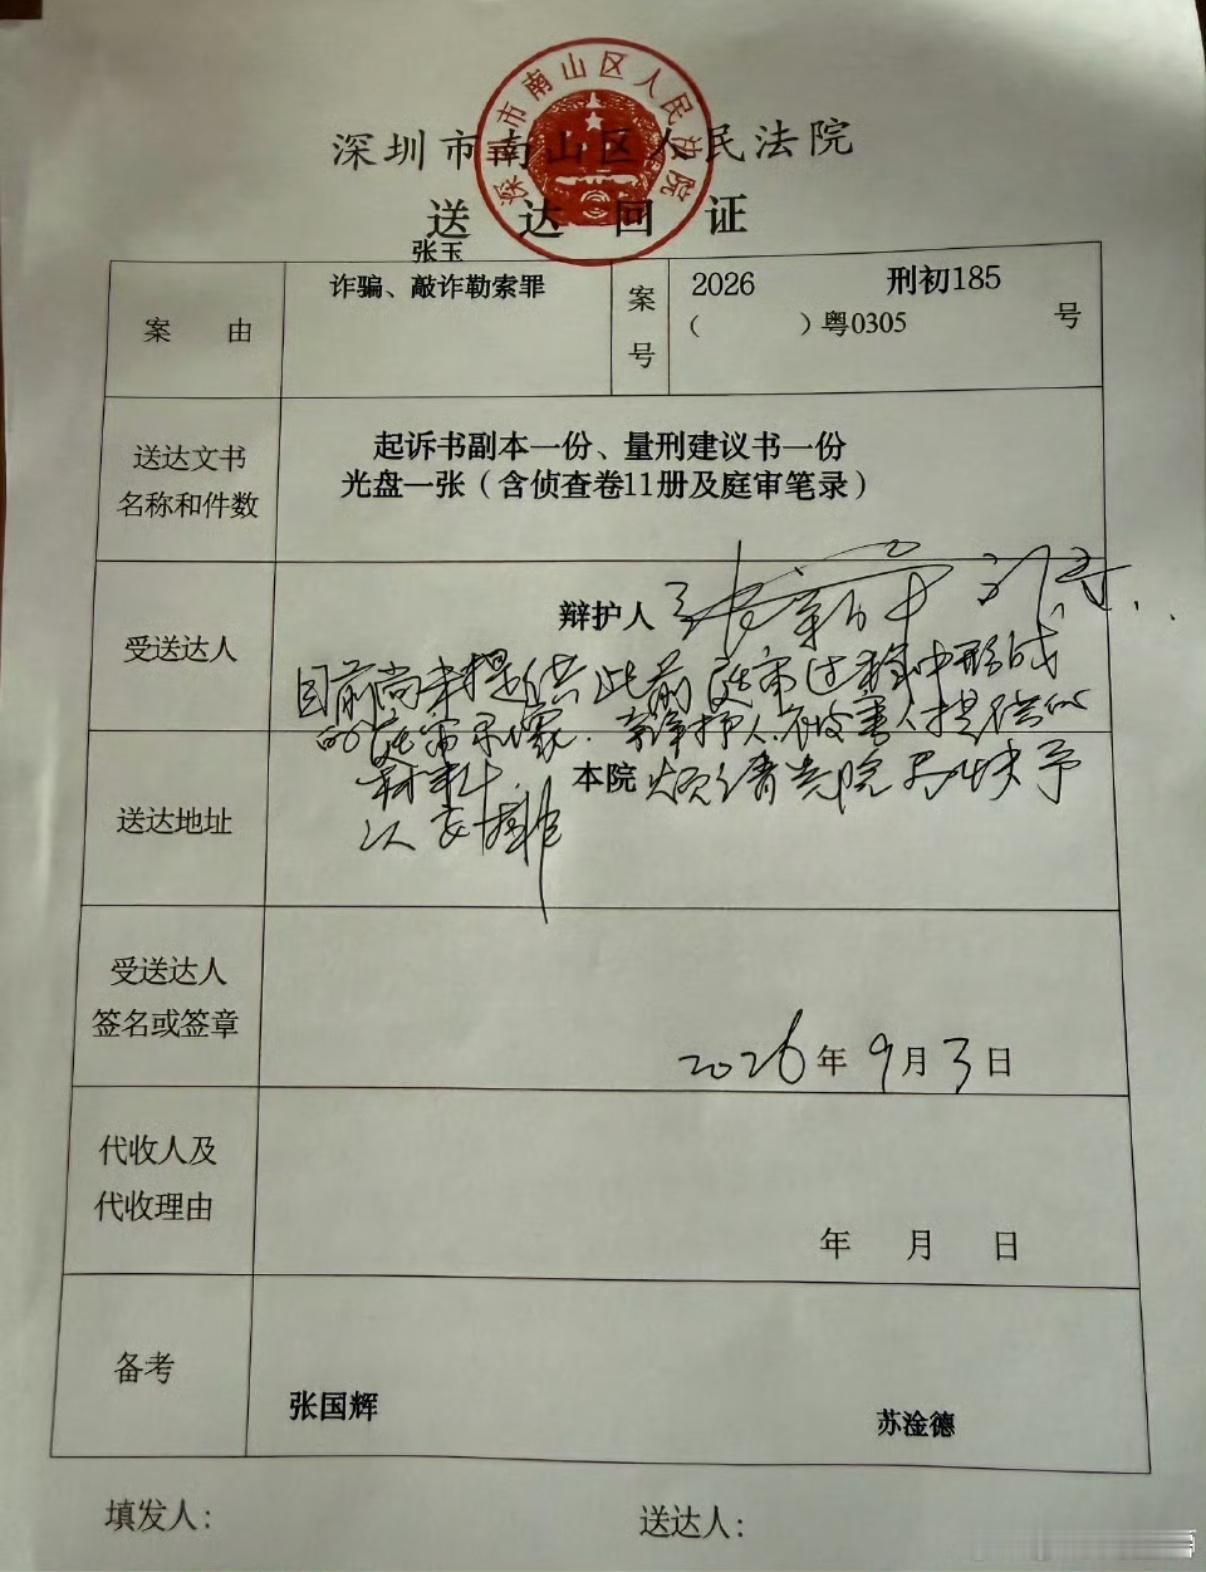 深圳市南山区人民法院
深圳市南山区人民法院
送达回证
张玉
案由
诈骗、敲诈勒索罪
案号
2026 刑初185
（ ）粤0305 号
送达文书
名称和件数
起诉书副本一份、量刑建议书一份
光盘一张（含侦查卷11册及庭审笔录）
受送达人
辩护人
目前尚未提供此前庭审过程中形成
的庭审录像、辩护人、被害人提供的
材料
送达地址
本院 烦请贵院尽快予
以安排
受送达人
签名或签章
2026年9月3日
代收人及
代收理由
年 月 日
备考
张国辉 苏淦德
填发人： 送达人：